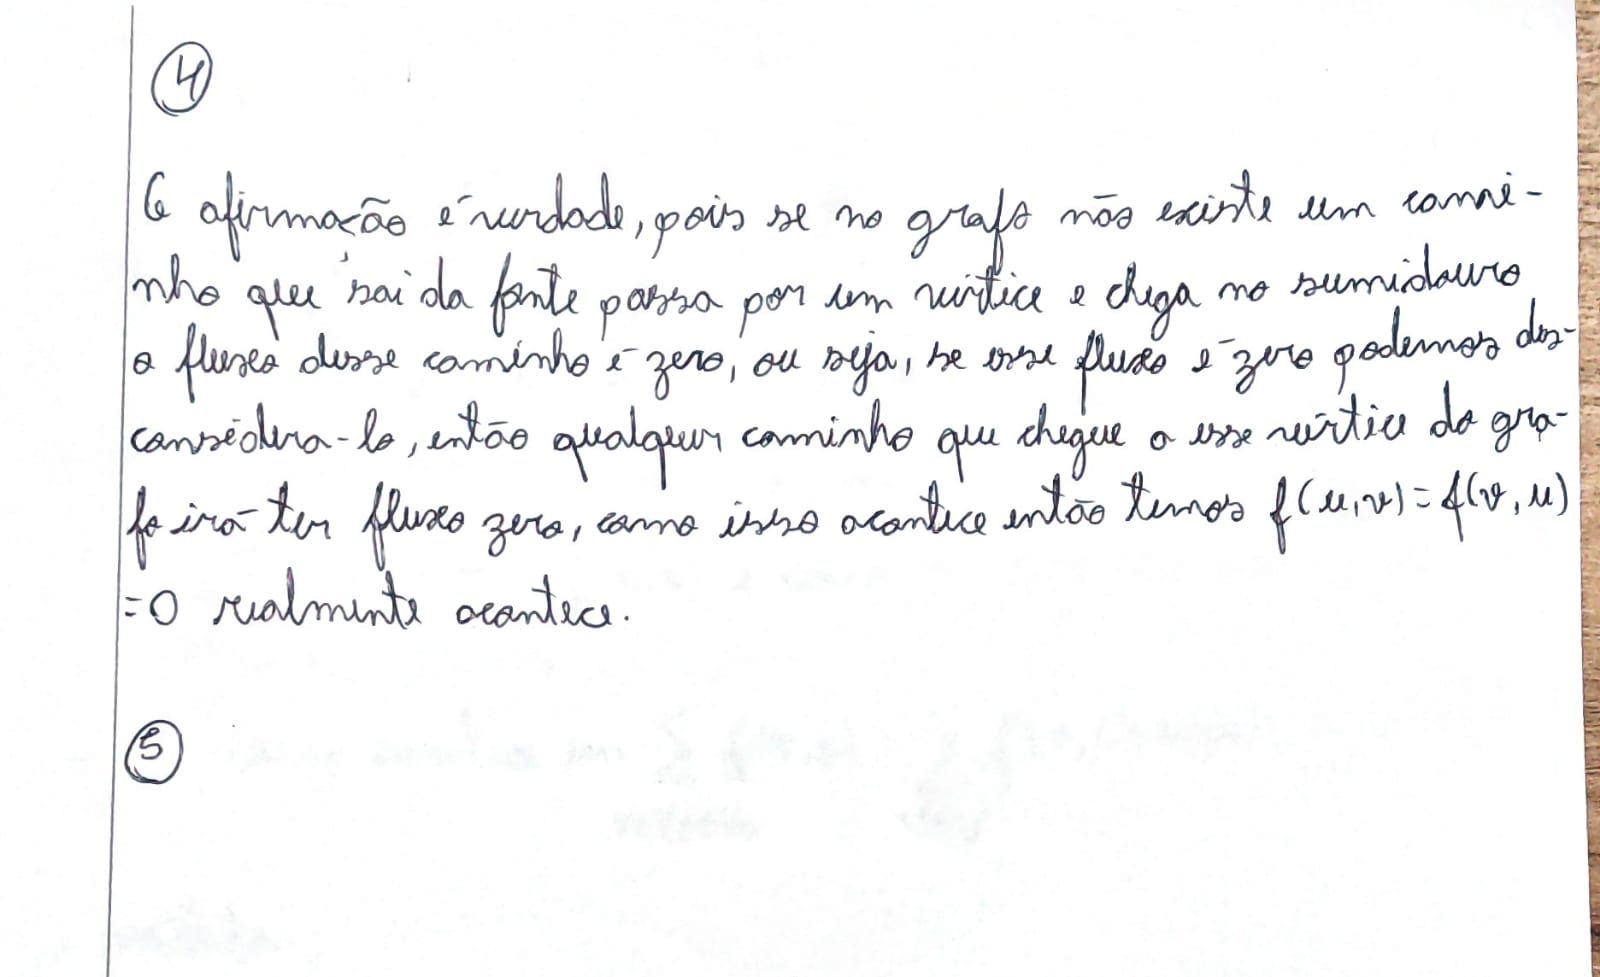 4
A afirmação é verdade, pois se no grafo não existe um cami-
nho que sai da fonte passa por um vértice e chega no sumidouro
o fluxo desse caminho é zero, ou seja, se esse fluxo é zero podemos des-
considera-lo, então qualquer caminho que chegue a esse vértice do gra-
fo irá ter fluxo zero, como isso acontece então temos f(u,v)=f(v,u)
=0 realmente acontece.
5